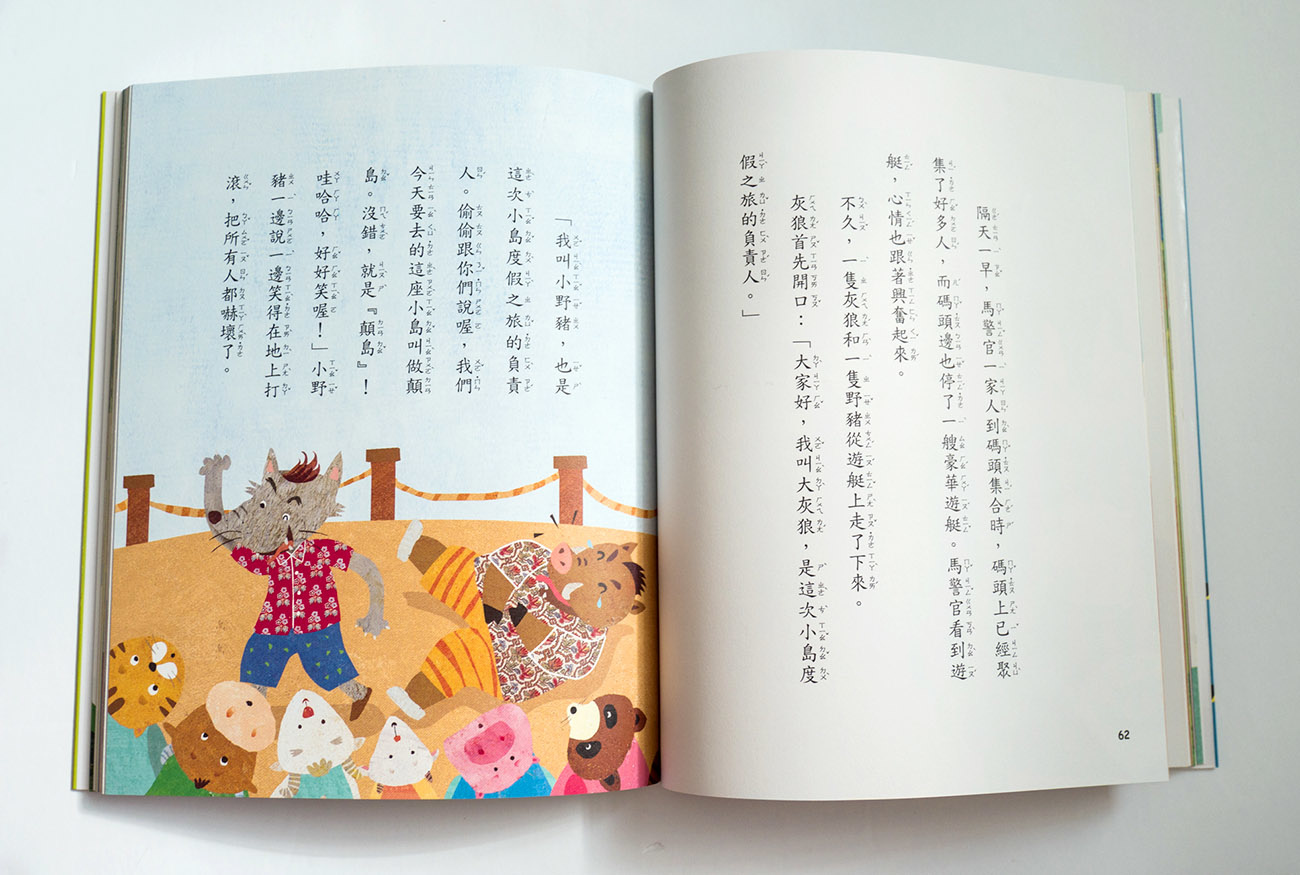 隔天一早，馬警官一家人到碼頭集合時，碼頭上已經聚
集了好多人，而碼頭邊也停了一艘豪華遊艇。馬警官看到遊
艇，心情也跟著興奮起來。
不久，一隻灰狼和一隻野豬從遊艇上走了下來。
灰狼首先開口：「大家好，我叫大灰狼，是這次小島度
假之旅的負責人。」
62
「我叫小野豬，也是
這次小島度假之旅的負責
人。偷偷跟你們說喔，我們
今天要去的這座小島叫做顛
島。沒錯，就是『顛島』！
哇哈哈，好好笑喔！」小野
豬一邊說一邊笑得在地上打
滾，把所有人都嚇壞了。